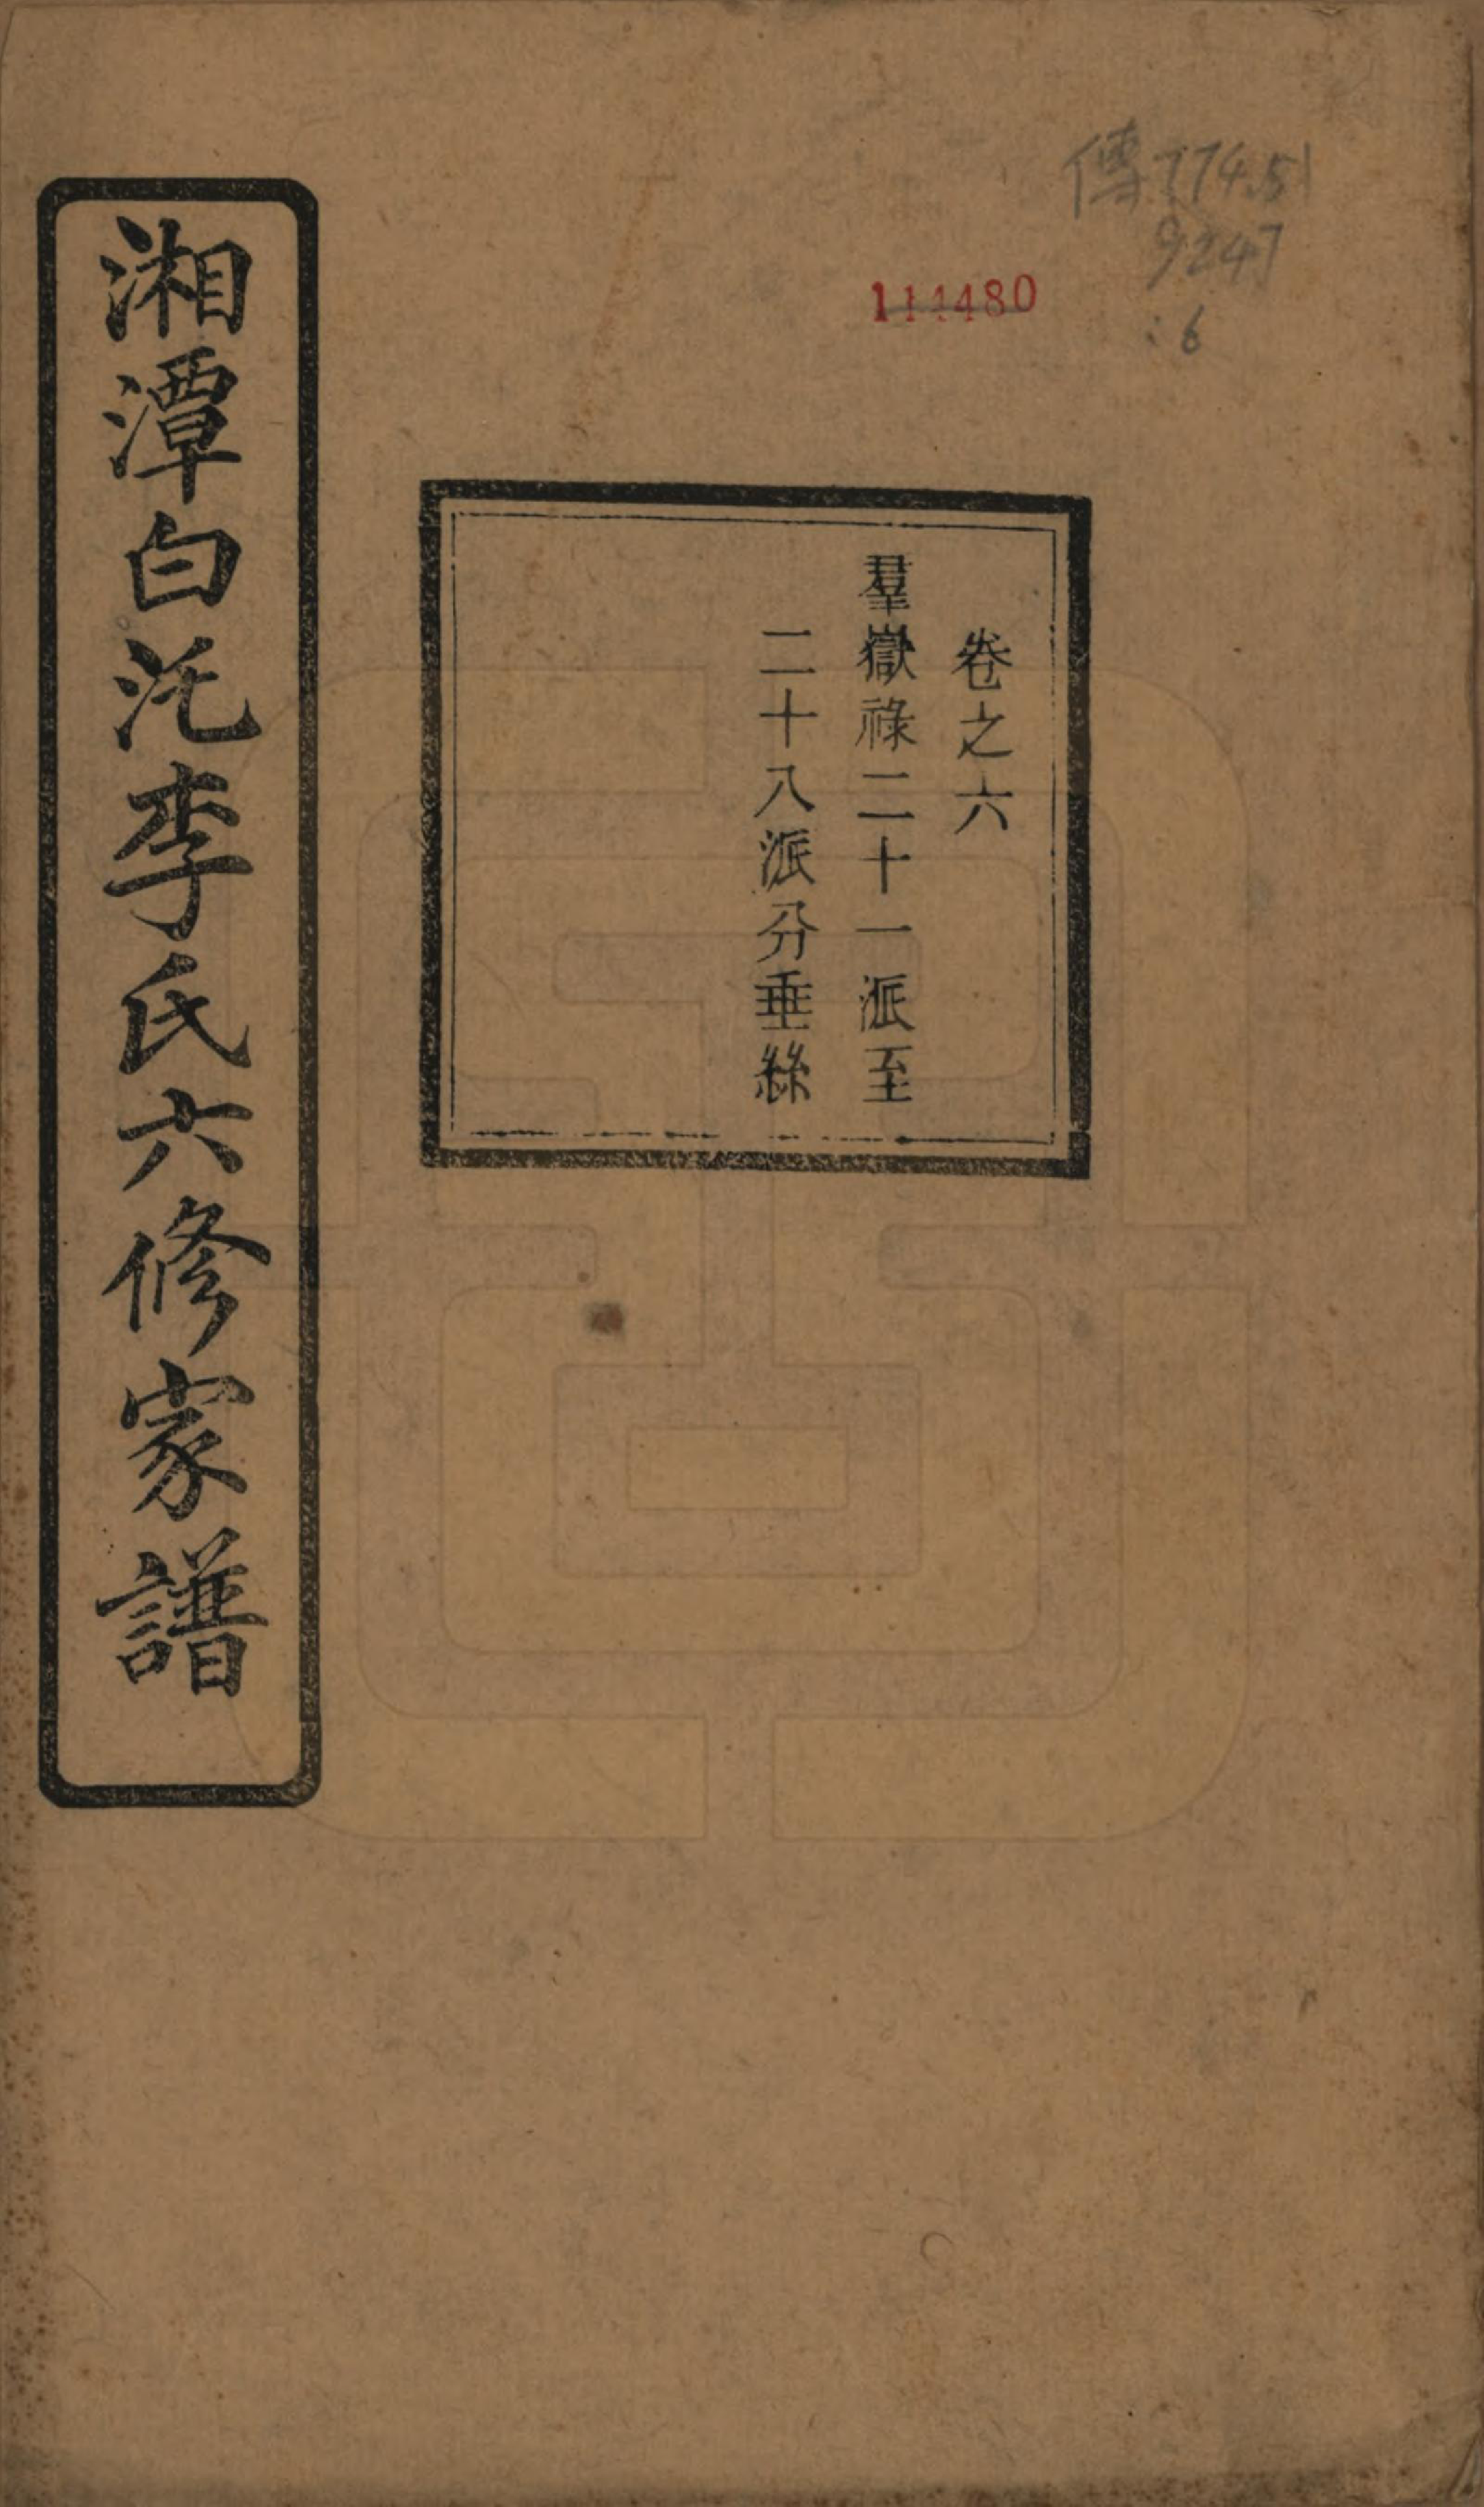 傳 774.51
9247
:6
114480
卷之六
羣嶽祿二十一派至
二十八派分垂絲
湘潭白沱李氏六修家譜